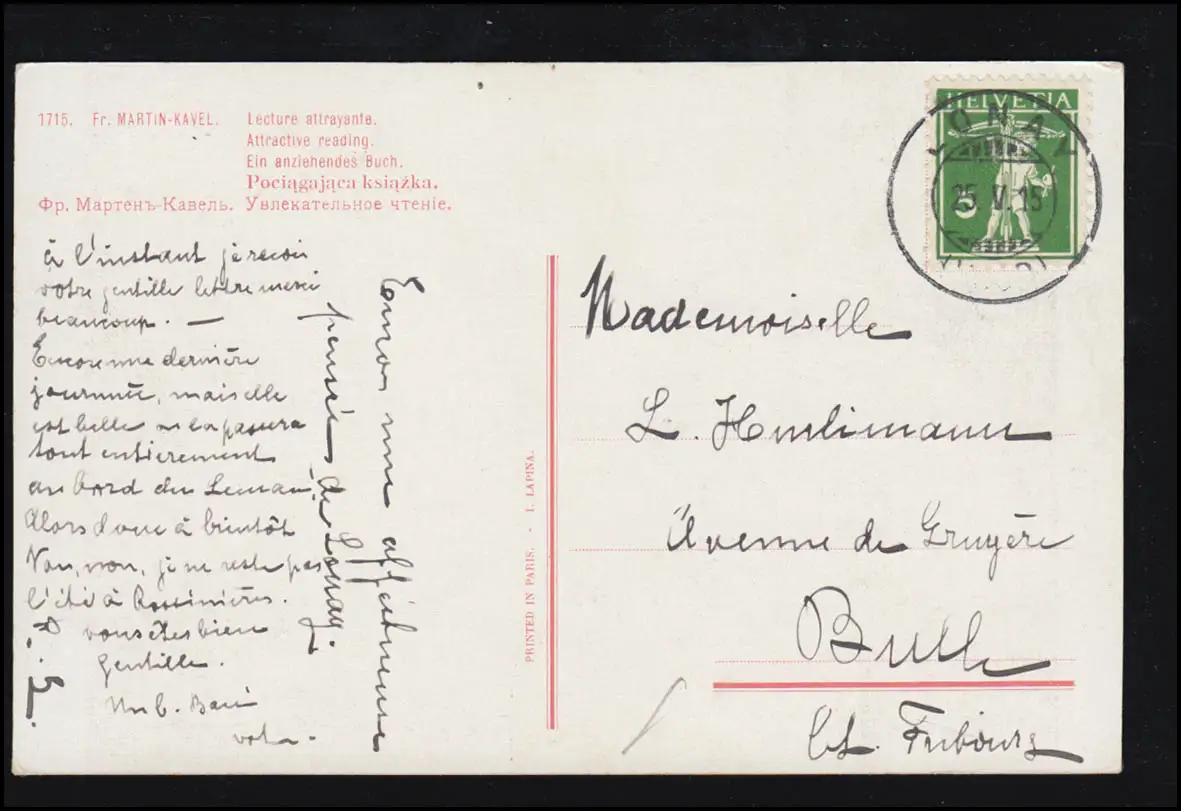 1715. Fr. MARTIN-KAVEL. Lecture attrayante.
Attractive reading.
Ein anziehendes Buch.
Pociągająca książka.
Фр. Мартенъ-Кавель. Увлекательное чтеніе.
à l'instant je reçoi
votre gentille lettre merci
beaucoup. —
Encore une dernière
journnée, mais elle
est belle on la passera
tout entièrement
au bord du Leman,
Alors donc à bientôt
Non, non, je ne reste pas
l'été à Rossinières.
vous êtes bien
gentille.
Un b. Bai
Encor une affectueuse
pensée de Lonay.
PRINTED IN PARIS. - I. LAPINA.
HELVETIA
5
LONAY
25. V. 15
Mademoiselle
L. Hurlimann
Avenue de Gruyère
Bulle
Ct. Fribourg